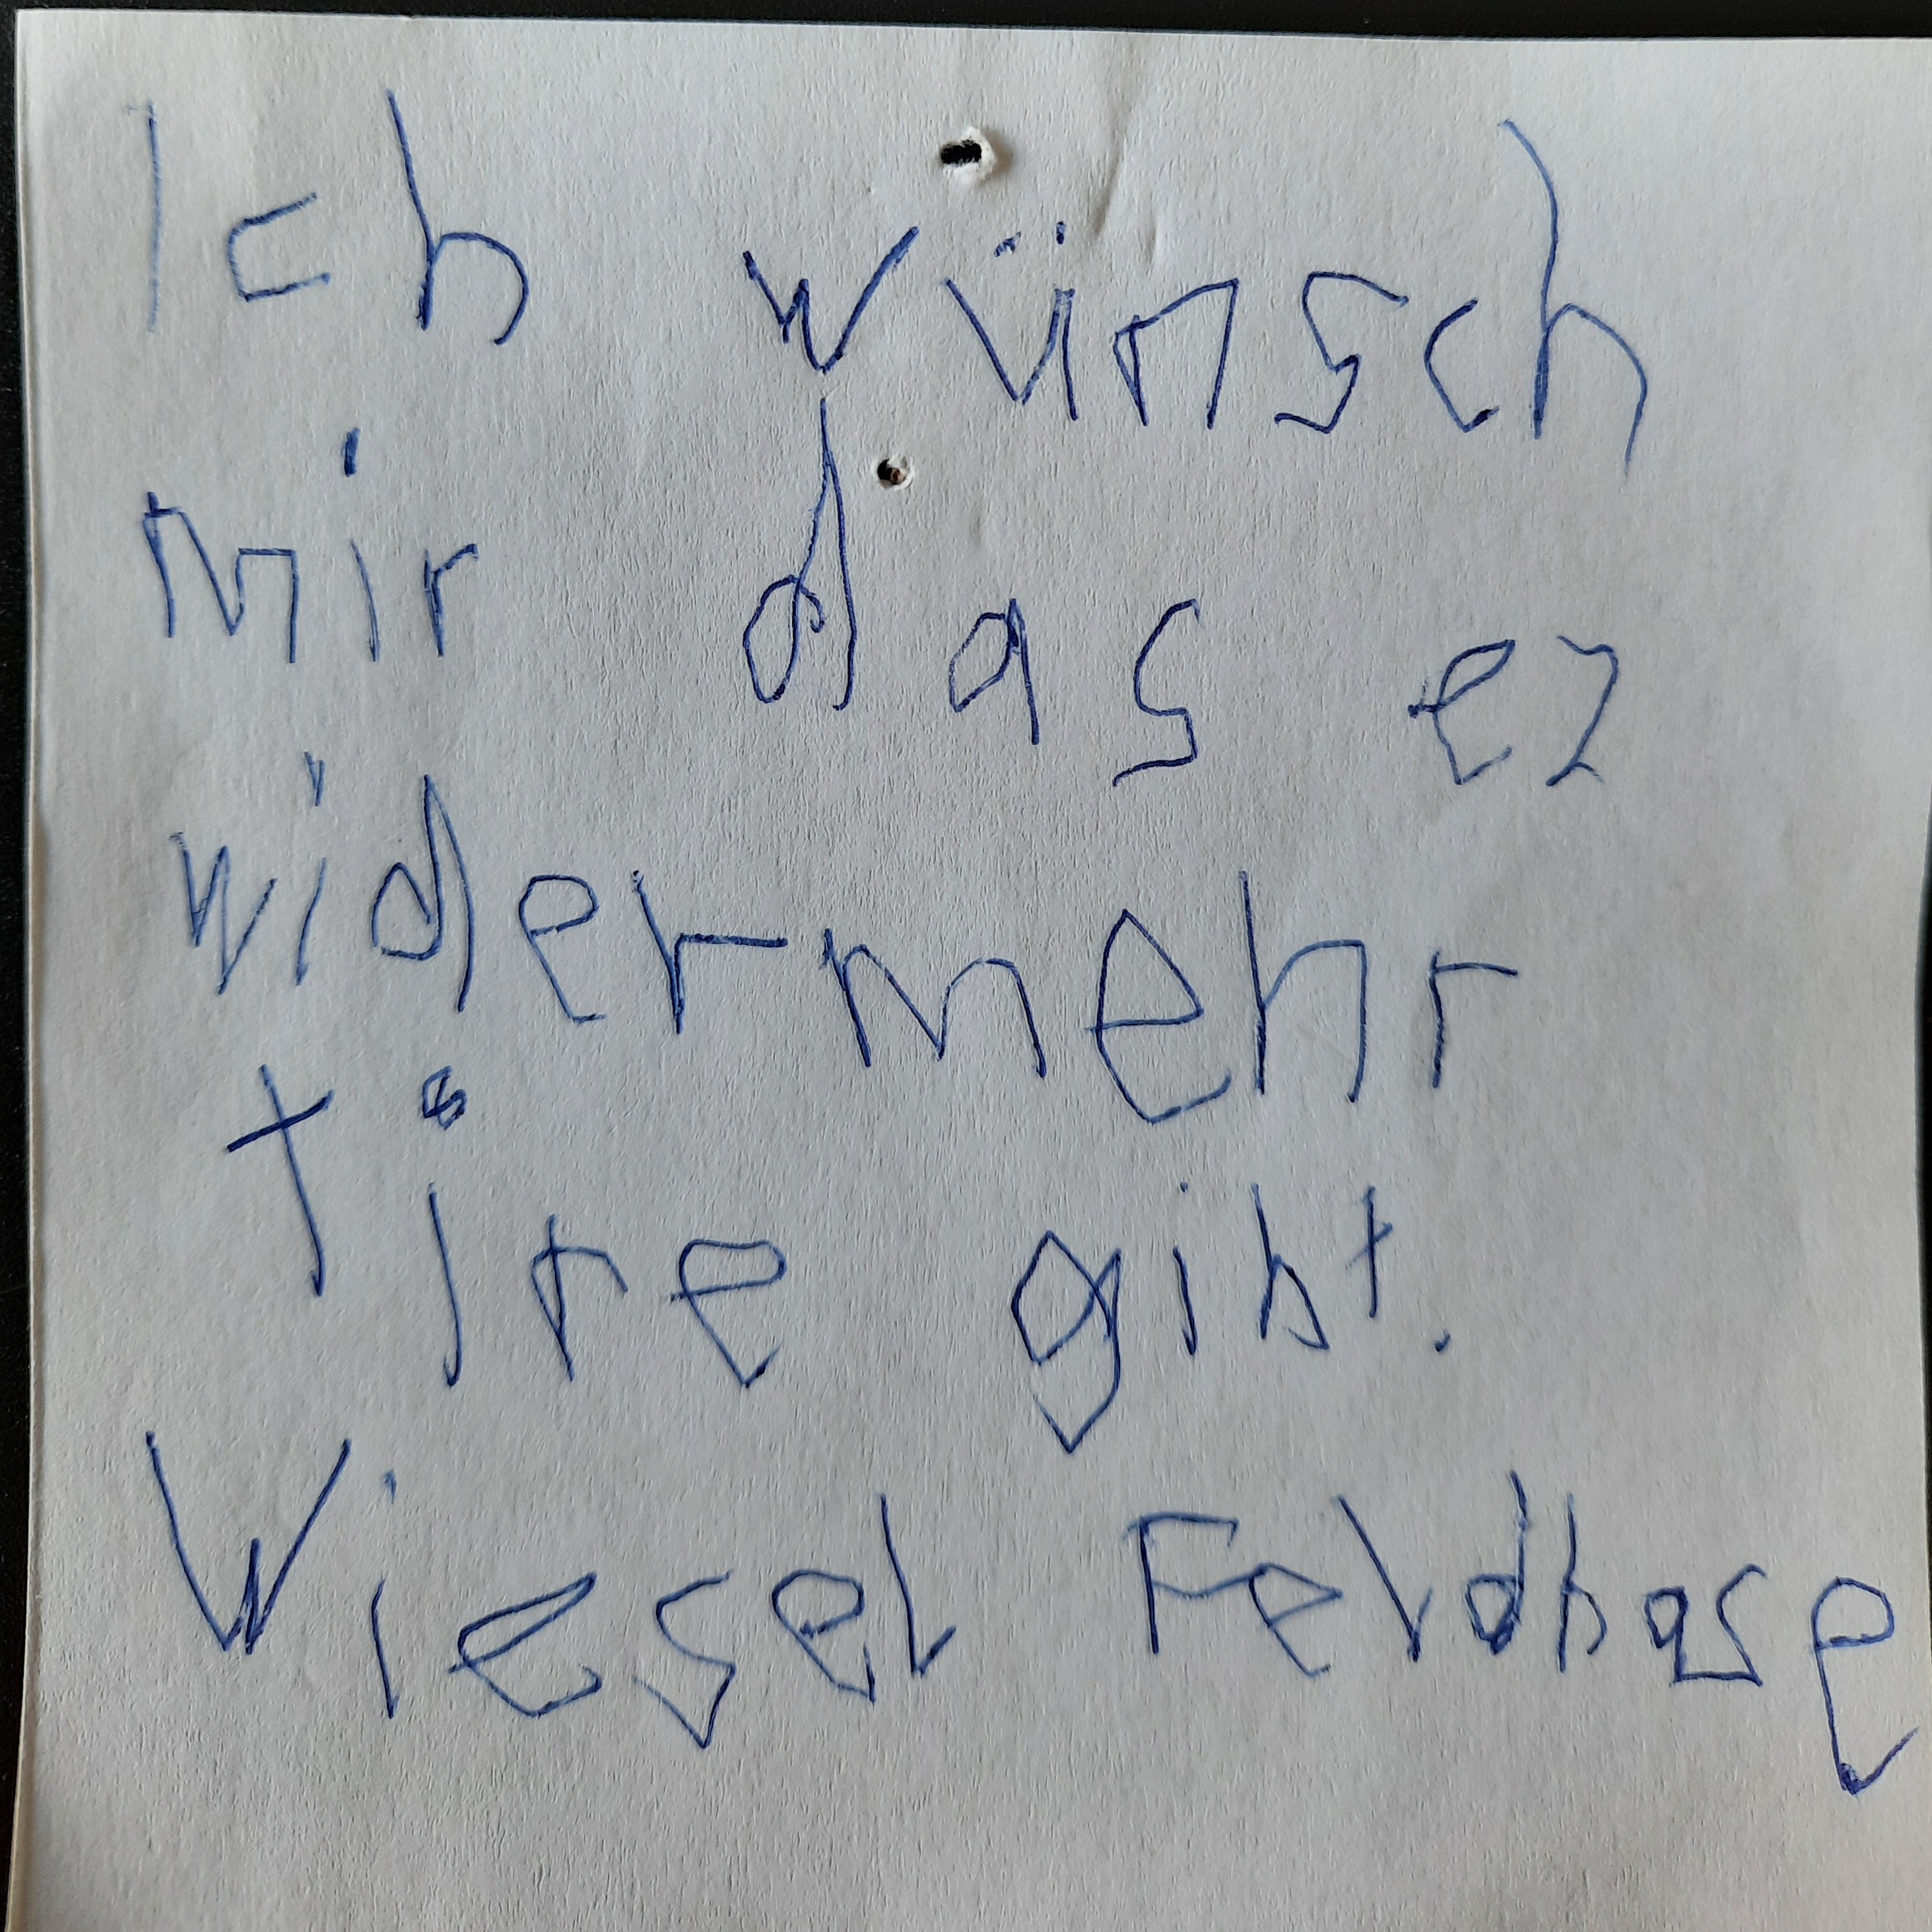 Ich wünsch
mir das es
widermehr
tire gibt.
Wiesel Feldhase